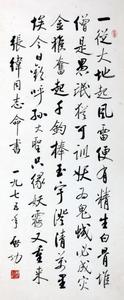 一從大地起風雷便有精生白骨堆
僧是愚氓猶可訓妖為鬼蜮必成災
金猴奮起千鈞棒玉宇澄清萬里
埃今日歡呼孫大聖只緣妖霧又重来
張緯同志命書 一九七五年 啟功